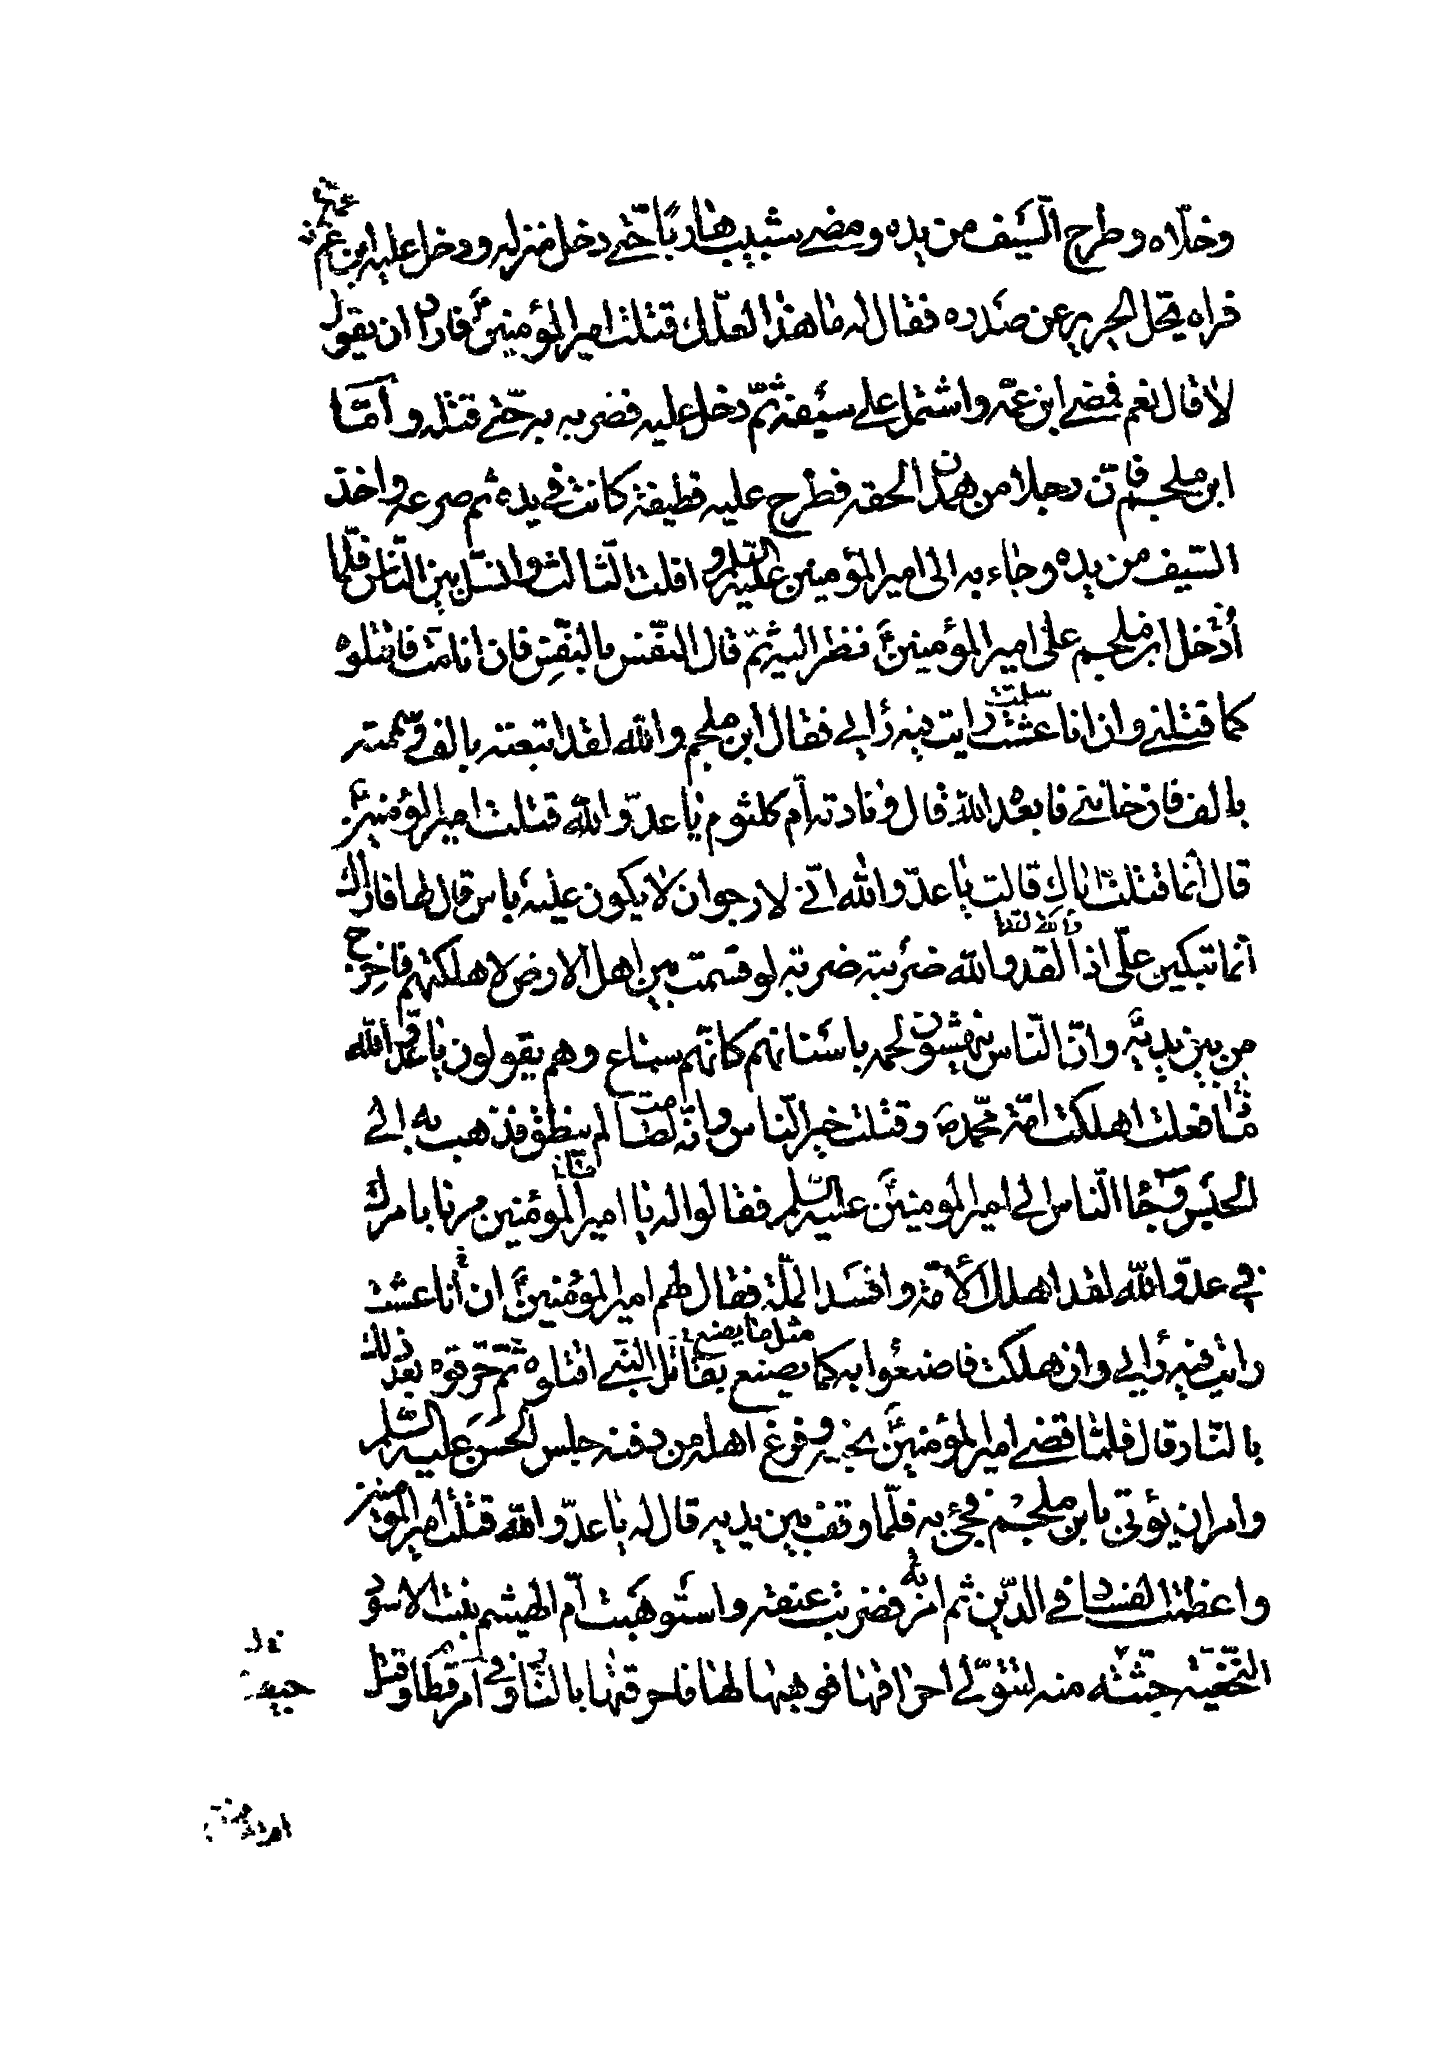 وخلّاه وطرح السّيف من يده ومضى شبيب هاربًا حتّى دخل منزله ودخل عليه ابن عمّ
فراه يحل الحرير عن صدره فقال له ما هذا لعلّك قتلت امير المؤمنين فاراد ان يقول
لا قال نعم فمضى ابن عمّه واشتمل على سيفه ثمّ دخل عليه فضربه به حتّى قتله وامّا
ابن ملجم فانّ رجلا من همدان لحقه فطرح عليه قطيفة كانت في يده ثم صرعه واخذ
السّيف من يده وجاء به الى امير المؤمنين عليه السّلم وافلت الثالث وانسلّ بين النّاس فلمّا
أُدخل ابن ملجم على امير المؤمنين فنظر اليه ثمّ قال النّفس بالنّفس فان انا متّ فاقتلوه
كما قتلني وان انا عشت رايت فيه رأيي فقال ابن ملجم والله لقد ابتعته بالف وسممته
بالف فان خانني فابعده الله قال ونادته أم كلثوم يا عدوّ الله قتلت امير المؤمنين
قال انّما قتلت اباك قالت يا عدوّ الله انّي لارجوا ان لا يكون عليه باس قال لها فاراك
انّما تبكين علىّ اذا لقد والله ضربته ضربة لو قسمت بين اهل الارض لاهلكتهم فاخرج
من بين يديه وانّ النّاس ينهشون لحمه باسنانهم كانّهم سباع وهم يقولون يا عدوّ الله
ما ذا فعلت اهلكت امّة محمّد ص وقتلت خير النّاس وانّه لصامت لم ينطق فذهب به الى
الحبس وجاء النّاس الى امير المؤمنين عليه السّلم فقالوا له يا امير المؤمنين مرنا بامرك
في عدوّ الله لقد اهلك الأمّة وافسد الملّة فقال لهم امير المؤمنين ان أنا عشت
رايت فيه رأيي وان هلكت فاصنعوا به كما يصنع بقاتل النّبيّ اقتلوه ثمّ حرّقوه بعد ذلك
بالنّار قال فلمّا قضى امير المؤمنين نحبه وفرغ اهله من دفنه جلس الحسن عليه السّلم
وامر ان يؤتى بابن ملجم فجئ به فلمّا وقف بين يديه قال له يا عدوّ الله قتلت امير المؤمنين
واعظمت الفساد في الدّين ثم امر به فضربت عنقه واستوهبت أمّ الهيثم بنت الاسود
النّخعيّة جثّته منه لتتولّى احراقها فوهبها لها فاحرقتها بالنّار وفي أمر قطام وقتل